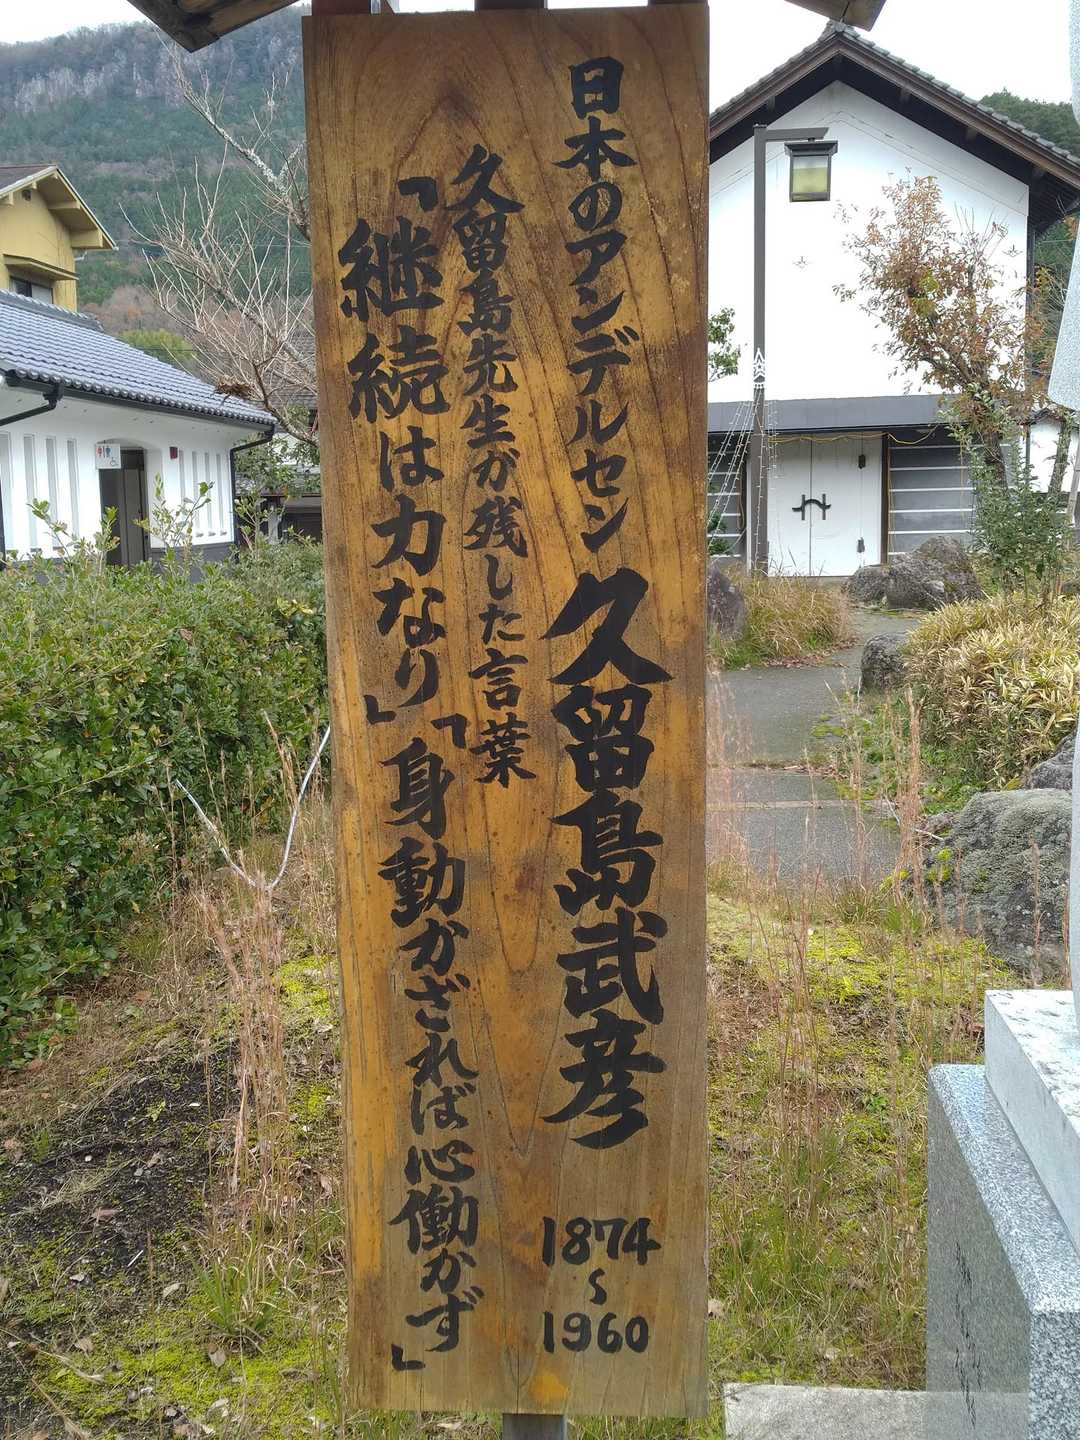 日本のアンデルセン 久留島武彦 1874〜1960
久留島先生が残した言葉
「継続は力なり」「身動かざれば心働かず」